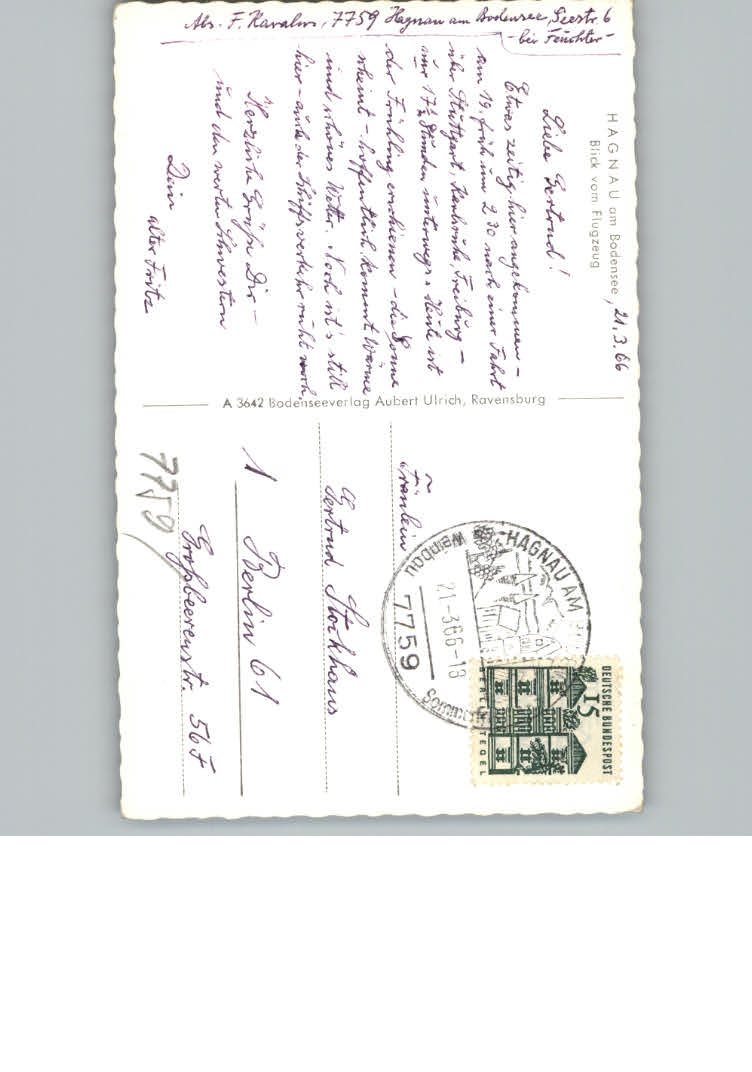 Abs. F. Karalus, 7759 Hagnau am Bodensee, Seestr. 6
- bei Feuchter -
HAGNAU am Bodensee, 21.3.66
Blick vom Flugzeug
Liebe Gertrud!
Etwas zeitig hier angekommen -
am 19. früh um 2.30 nach einer Fahrt
über Stuttgart, Karlsruhe, Freiburg -
nur 17½ Stunden unterwegs. Heute ist
der Frühling erschienen - die Sonne
scheint - hoffentlich kommt Wärme
und schönes Wetter. Noch ist's still
hier - auch der Schiffsverkehr ruht noch.
Herzliche Grüße Dir -
und den werten Schwestern
Dein
alter Fritz
A 3642 Bodenseeverlag Aubert Ulrich, Ravensburg
Fräulein
Gertrud Stockhaus
1 Berlin 61
Großbeerenstr. 56 F
7759
HAGNAU AM
Weinbau
21-3.66-18
7759
Sommer
DEUTSCHE BUNDESPOST
15
BERLIN TEGEL